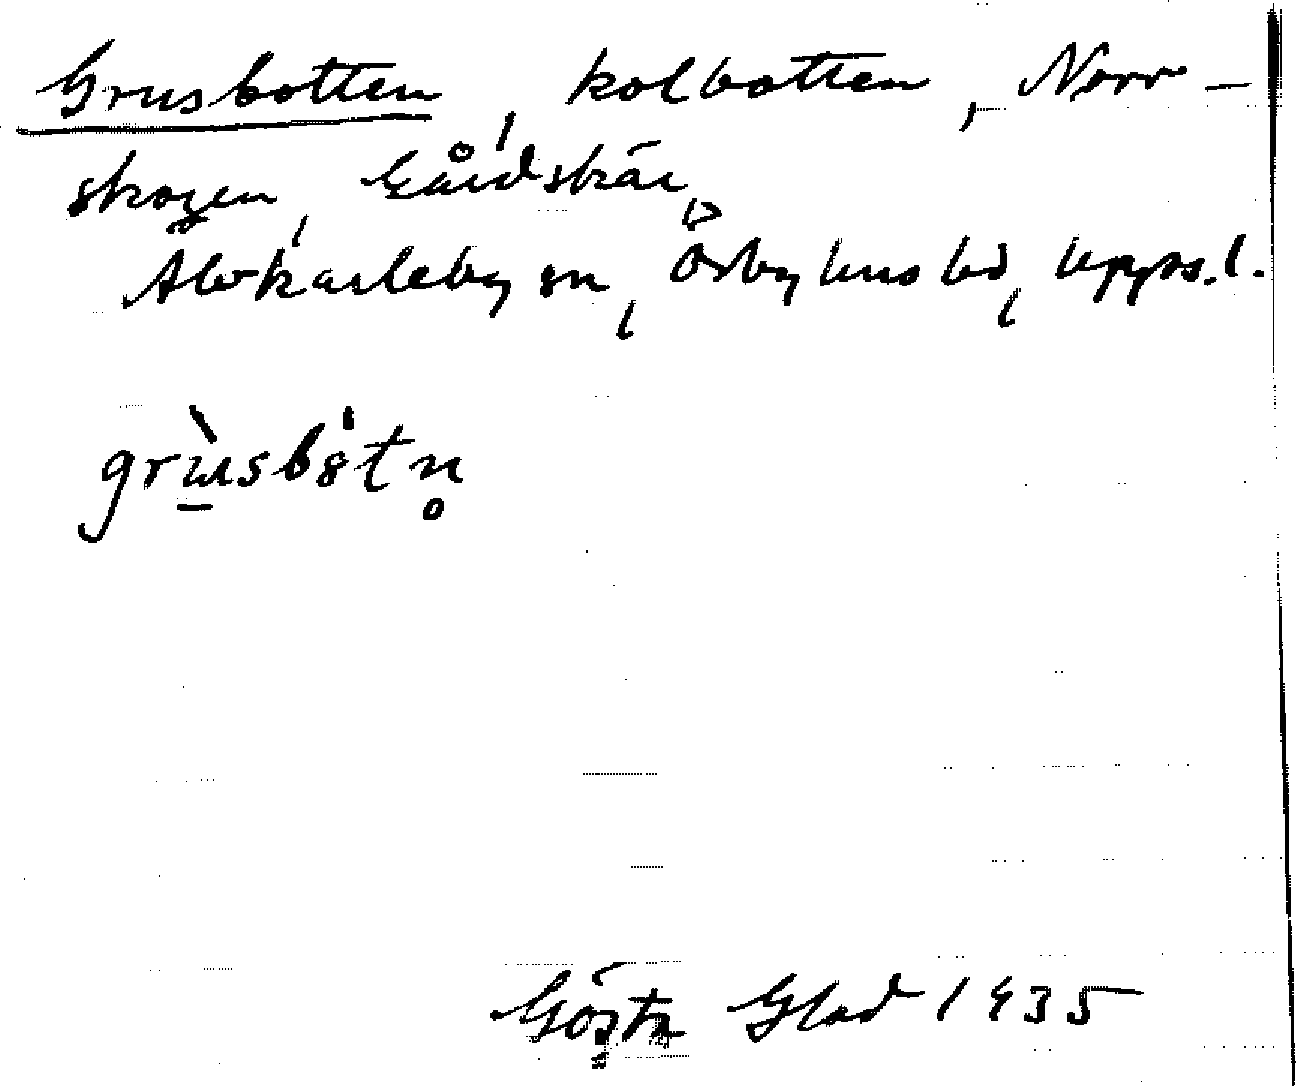 Grusbotten, kolbotten, Norr-
skogen, Gårdskär,
Älvkarleby sn, Örbyhus hd, Upps. l.
grùsbo̍tn̥
Gösta Glad 1935